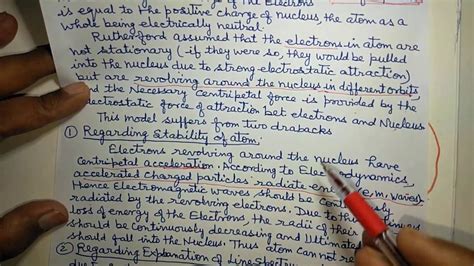 of The Electrons
is equal to the positive charge of nucleus, the atom as a
whole being electrically neutral.
Rutherford assumed that the electrons in atom are
not stationary (if they were so, they would be pulled
into the nucleus due to strong electrostatic attraction)
but are revolving around the nucleus in different orbits
and the Necessary centripetal force is provided by the
electrostatic force of attraction bet electrons and Nucleus
This model suffers from two drabacks
① Regarding Stability of atom.
Electrons revolving around the nucleus have
Centripetal acceleration. According to Electrodynamics,
accelerated charged particles radiate e.m. waves.
Hence Electromagnetic waves should be
radiated by the revolving electrons. Due to this
loss of energy of the Electrons, the radii of their
should be Continuously decreasing and Ultimately
should fall into the Nucleus. Thus atom cannot
② Regarding Explanation of Line Spectru